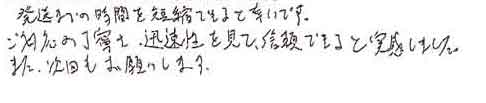 発送までの時間を短縮できると幸いです。
ご対応の丁寧さ、迅速性を見て、信頼できると実感しました。
また、次回もお願いします。